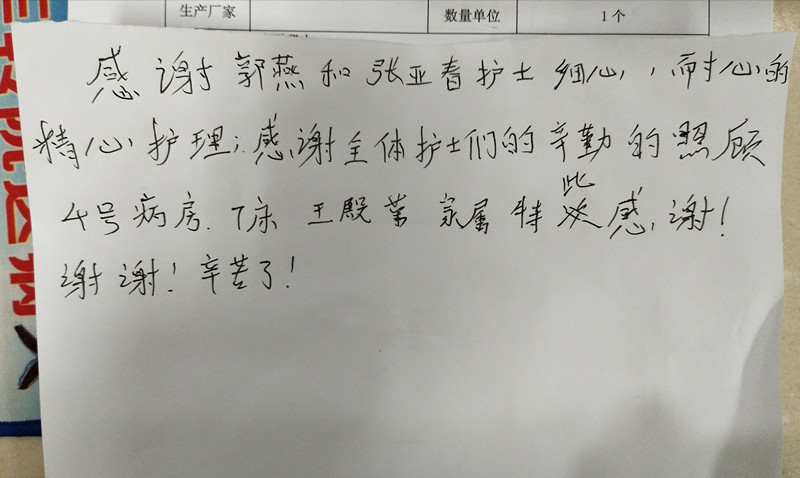 生产厂家 数量单位 1个
感谢郭燕和张亚春护士细心,耐心的
精心护理;感谢全体护士们的辛勤的照顾
4号病房.7床 王殿 家属特此感谢!
谢谢!辛苦了!